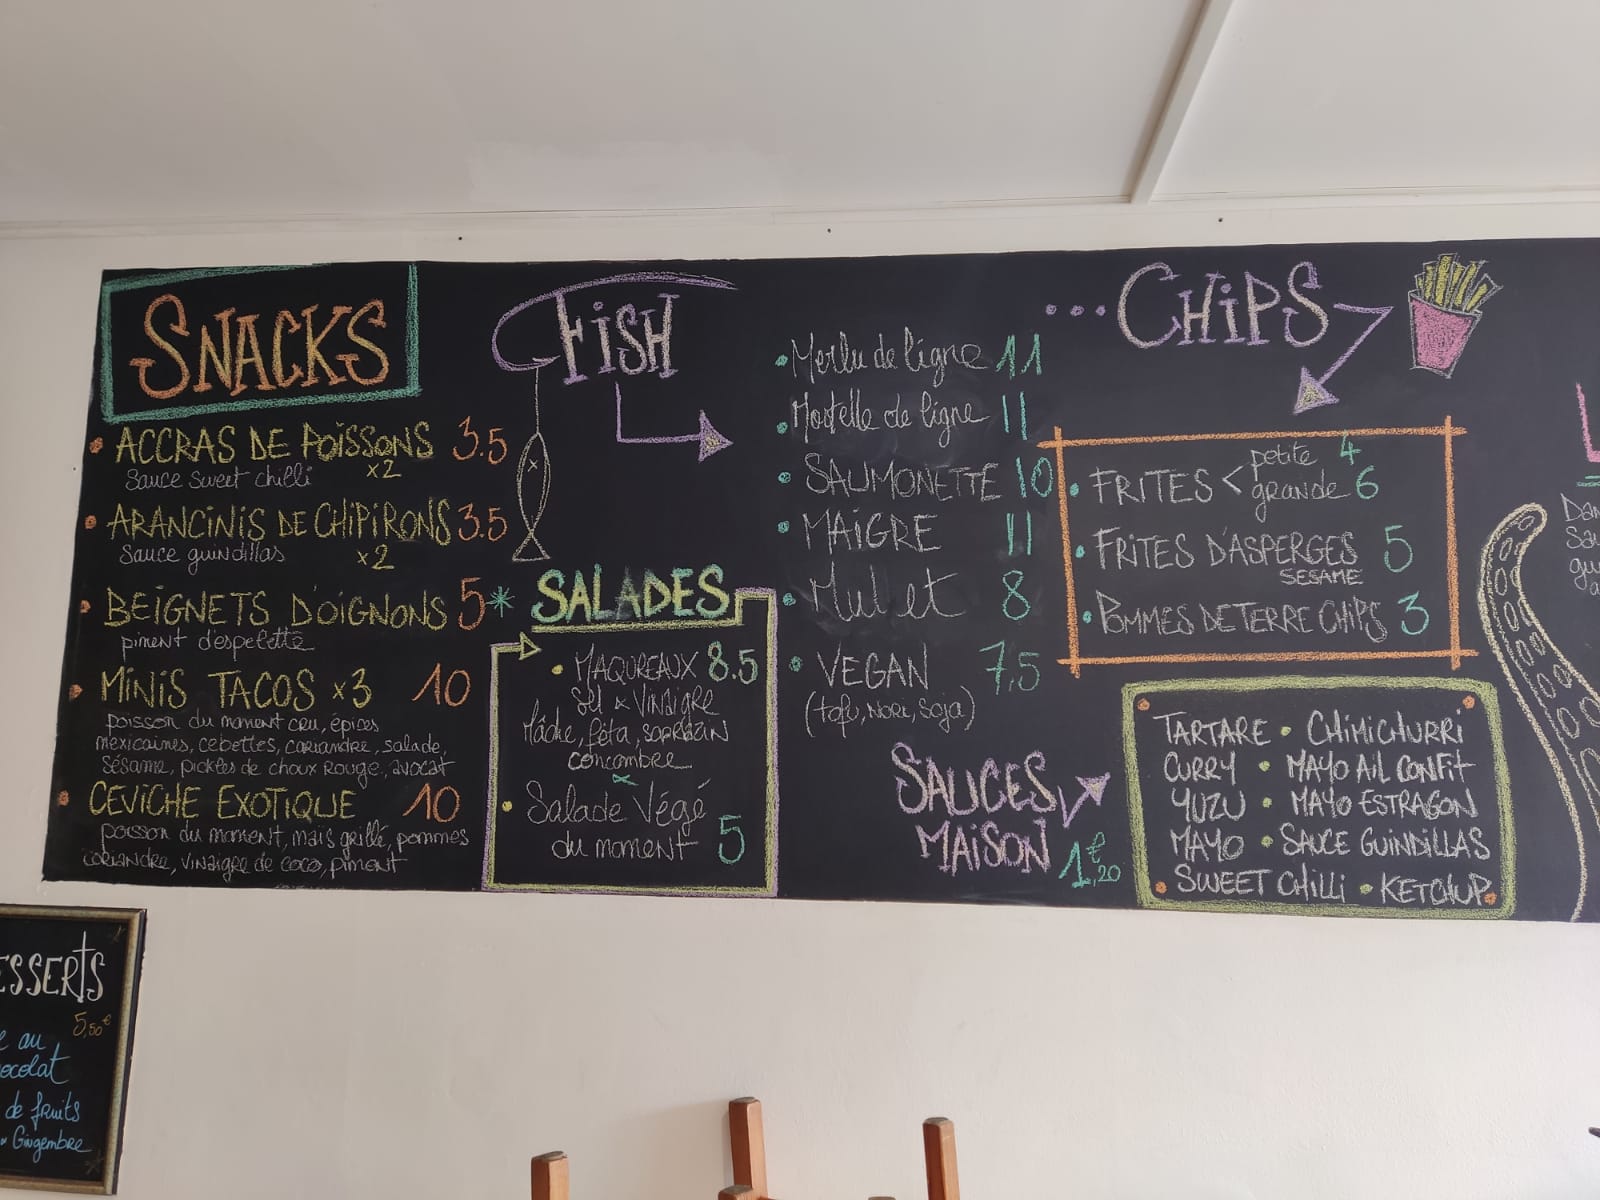 SNACKS
ACCRAS DE POISSONS 3.5
Sauce Sweet chilli x2
ARANCINIS DE CHIPIRONS 3.5
Sauce guindillas x2
BEIGNETS D'OIGNONS 5*
piment d'espelette
MINIS TACOS x3 10
poisson du moment cru, épices
mexicaines, cébettes, coriandre, salade,
sésame, pickles de choux rouge, avocat
CEVICHE EXOTIQUE 10
poisson du moment, maïs grillé, pommes
coriandre, vinaigre de coco, piment
FISH
SALADES
MAQUREAUX 8.5
Sel & Vinaigre
Mâche, féta, sarrazin
concombre
Salade Végé
du moment 5
Merlu de ligne 11
Mostelle de ligne 11
SAUMONETTE 10
MAIGRE 11
Mulet 8
VEGAN 7,5
(tofu, NORI, Soja)
... CHIPS
FRITES < petite 4
grande 6
FRITES D'ASPERGES 5
SESAME
POMMES DE TERRE CHIPS 3
SAUCES
MAISON 1€,20
TARTARE • CHIMICHURRI
CURRY • MAYO AIL CONFIT
YUZU • MAYO ESTRAGON
MAYO • SAUCE GUINDILLAS
SWEET CHILLI • KETCHUP
ESSERTS
5,50€
au
ocolat
de fruits
Gingembre